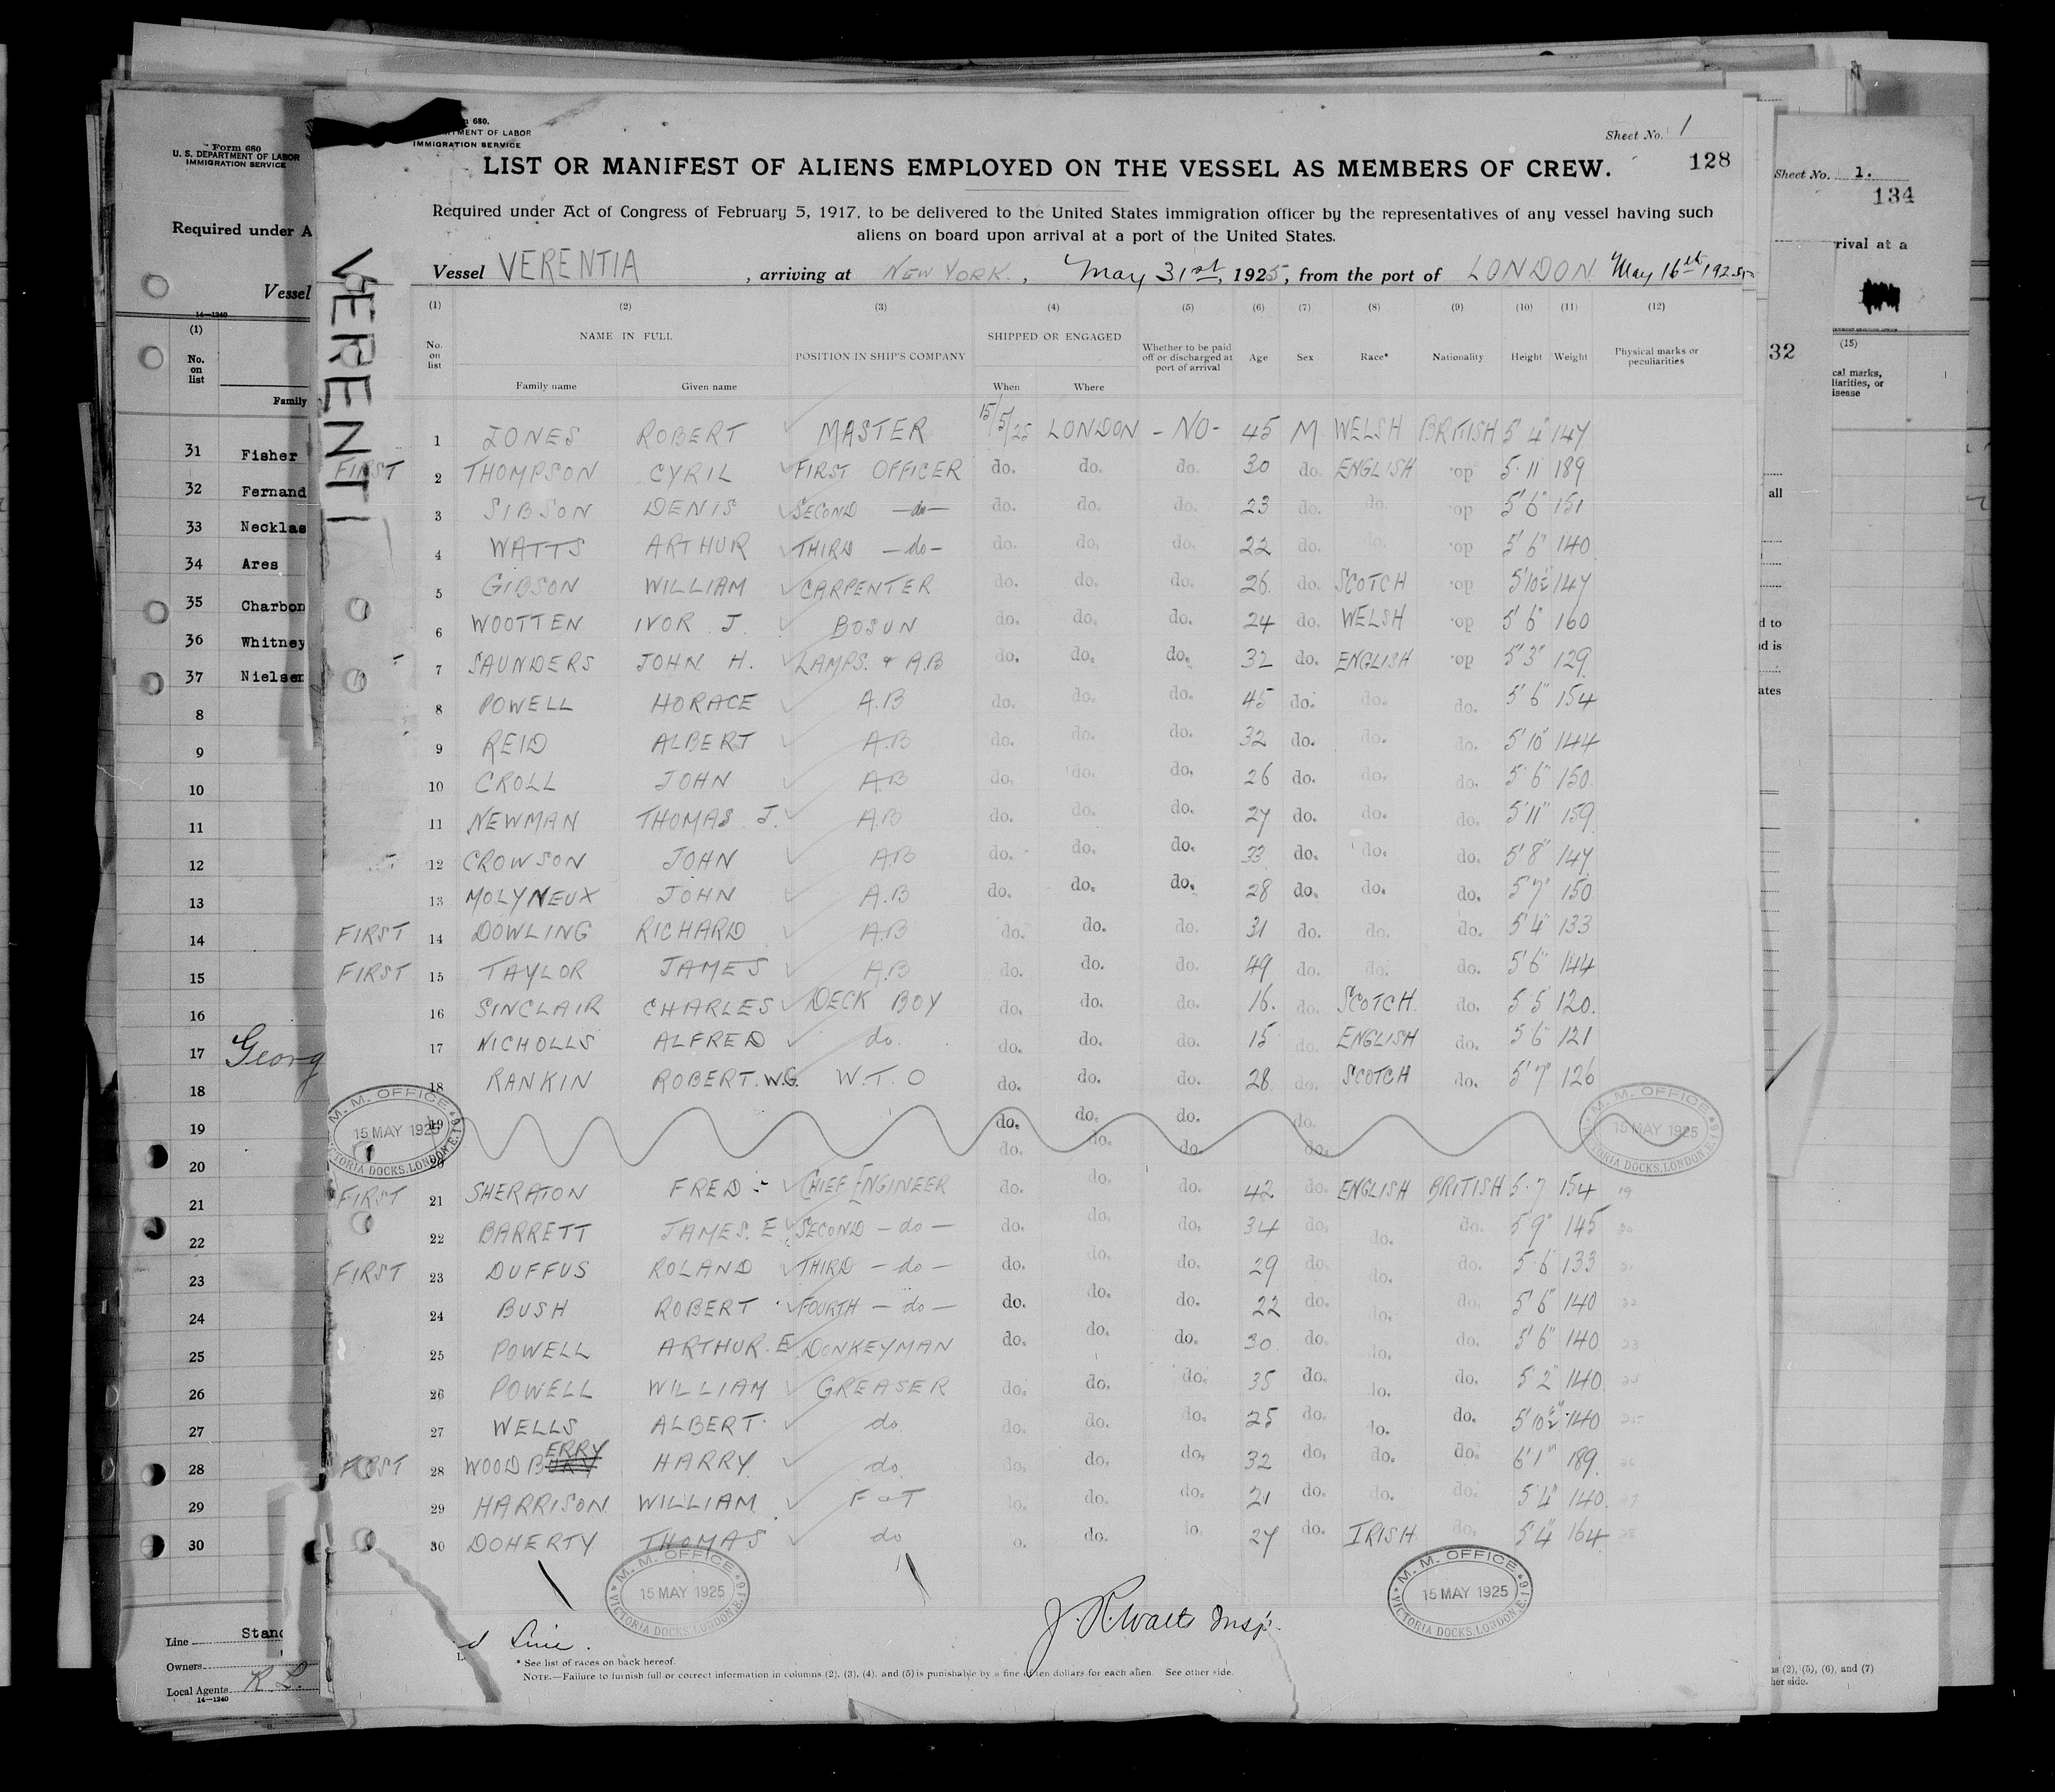 Form 680
U. S. DEPARTMENT OF LABOR
IMMIGRATION SERVICE
Required under A
Vessel
14—1240
(1)
No. on list
Family
31 Fisher
32 Fernand
33 Necklas
34 Ares
35 Charbon
36 Whitney
37 Nielsen
8
9
10
11
12
13
14
15
16
17 Georg
18
19
20
21
22
23
24
25
26
27
28
29
30
Line Stand
Owners
Local Agents R. L.
14—1240
680.
MENT OF LABOR
IMMIGRATION SERVICE
Sheet No. 1
128
LIST OR MANIFEST OF ALIENS EMPLOYED ON THE VESSEL AS MEMBERS OF CREW.
Required under Act of Congress of February 5, 1917, to be delivered to the United States immigration officer by the representatives of any vessel having such
aliens on board upon arrival at a port of the United States.
VERENTI
Vessel VERENTIA, arriving at NEW YORK, May 31st, 1925, from the port of LONDON May 16th 1925
(1) (2) (3) (4) (5) (6) (7) (8) (9) (10) (11) (12)
No. on list NAME IN FULL POSITION IN SHIP'S COMPANY SHIPPED OR ENGAGED Whether to be paid off or discharged at port of arrival Age Sex Race* Nationality Height Weight Physical marks or peculiarities
Family name Given name When Where
1 JONES ROBERT MASTER 15/5/25 LONDON - NO - 45 M WELSH BRITISH 5' 4" 147
FIRST 2 THOMPSON CYRIL FIRST OFFICER do. do. do. 30 do. ENGLISH do 5·11 189
3 SIBSON DENIS SECOND —do— do. do. do. 23 do. do. do 5' 6" 151
4 WATTS ARTHUR THIRD —do— do. do. do. 22 do. do. do 5' 6" 140
5 GIBSON WILLIAM CARPENTER do. do. do. 26. do. SCOTCH do 5' 10½ 147
6 WOOTTEN IVOR J. BOSUN do. do. do. 24 do. WELSH do 5' 6" 160
7 SAUNDERS JOHN H. LAMPS. & A.B do. do. do. 32 do. ENGLISH do 5' 3" 129
8 POWELL HORACE A.B do. do. do. 45 do. do. do. 5' 6" 154
9 REID ALBERT A.B do. do. do. 32 do. do. do. 5' 10" 144
10 CROLL JOHN A.B do. do. do. 26 do. do. do. 5' 6" 150
11 NEWMAN THOMAS J. A.B do. do. do. 27 do. do. do. 5' 11" 159
12 CROWSON JOHN A.B do. do. do. 33 do. do. do. 5' 8" 147
13 MOLYNEUX JOHN A.B do. do. do. 28 do. do. do. 5' 7" 150
FIRST 14 DOWLING RICHARD A.B do. do. do. 31 do. do. do. 5' 4" 133
FIRST 15 TAYLOR JAMES A.B do. do. do. 49 do. do. do. 5' 6" 144
16 SINCLAIR CHARLES DECK BOY do. do. do. 16. do. SCOTCH. do. 5 5 120.
17 NICHOLLS ALFRED do. do. do. do. 15 do. ENGLISH do. 5 6 121
18 RANKIN ROBERT. W.G. W. T. O do. do. do. 28 do. SCOTCH do. 5' 7" 126
19 do. do. do. do.
20 do. do. do. do.
M. M. OFFICE 15 MAY 1925 VICTORIA DOCKS, LONDON, E.16
M. M. OFFICE 15 MAY 1925 VICTORIA DOCKS, LONDON, E.16
FIRST 21 SHERATON FRED CHIEF ENGINEER do. do. do. 42 do. ENGLISH BRITISH 5·7 154 19
22 BARRETT JAMES. E SECOND —do— do. do. do. 34 do. do. do. 5 9" 145 20
FIRST 23 DUFFUS ROLAND THIRD —do— do. do. do. 29 do. do. do. 5·6 133 21
24 BUSH ROBERT FOURTH —do— do. do. do. 22 do. do. do. 5' 6" 140 22
25 POWELL ARTHUR. E DONKEYMAN do. do. do. 30 do. do. do. 5' 6" 140 23
26 POWELL WILLIAM GREASER do. do. do. 35 do. do. do. 5 2" 140 24
27 WELLS ALBERT do do. do. do. 25 do. do. do. 5' 10½" 140 25
FIRST 28 WOODBERRY HARRY do do. do. do. 32 do. do. do. 6' 1" 189 26
29 HARRISON WILLIAM F & T do. do. do. 21 do. do. do. 5' 4" 140 27
30 DOHERTY THOMAS do o. do. do 27 do. IRISH do. 5' 4" 164 28
M. M. OFFICE 15 MAY 1925 VICTORIA DOCKS, LONDON, E.16
M. M. OFFICE 15 MAY 1925 VICTORIA DOCKS, LONDON, E.16
d Line.
J. R. Watts Insp.
* See list of races on back hereof.
NOTE.—Failure to furnish full or correct information in columns (2), (3), (4), and (5) is punishable by a fine of ten dollars for each alien. See other side.
Sheet No. 1.
134
rival at a
32
(15)
cal marks,
liarities, or
isease
all
d to
d is
ates
s (2), (5), (6), and (7)
her side.